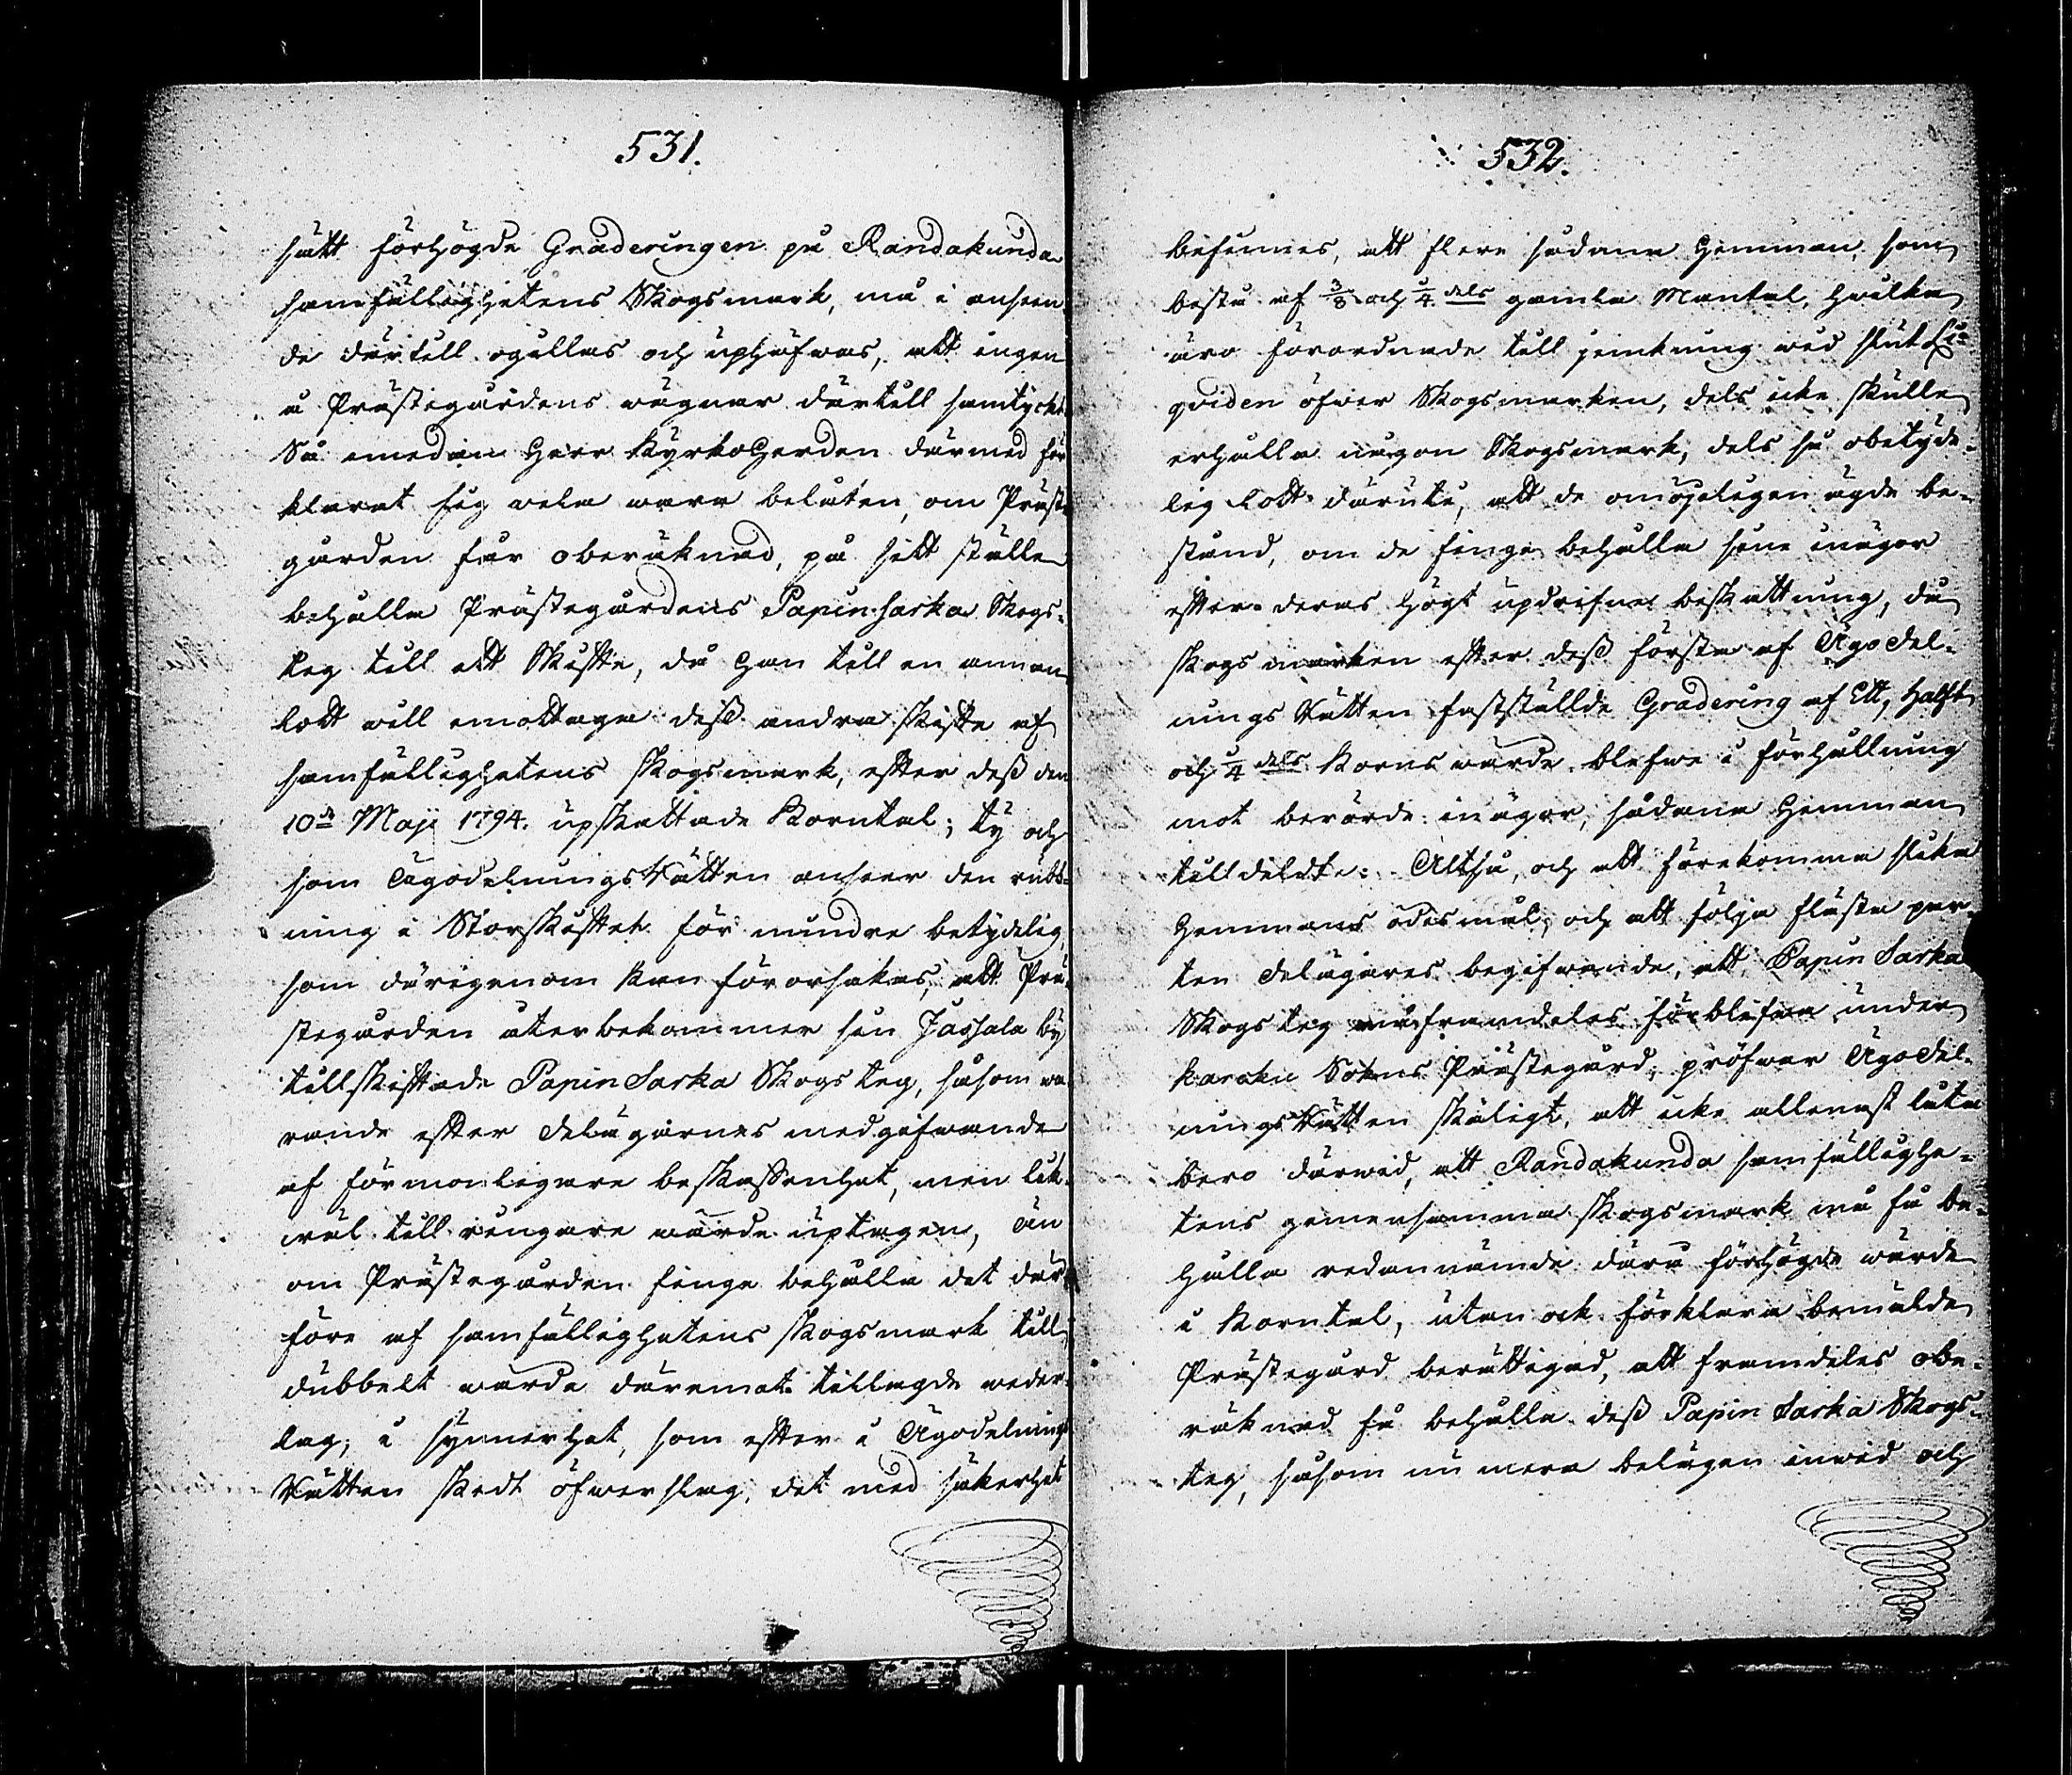 531.
sätt förhögde Graderingen på Randakunda
samfällighetens Skogsmark, må i anseen¬
de därtill ogillas och uphäfwas, att ingen
å Prästegårdens wägnar därtill samtyckt.
Så emedan Herr Kyrkoherden därmed för
klarat sig wela wara belåten, om Präste
gården får oberäknad, på sitt ställe
behålla Prästegårdens Papinsarka Skogs¬
teg till ett Skifte, då han till en annan
lott will emottaga dess andra skifte af
samfällighetens Skogsmark, efter dess den
10de Maji 1794. upskattade Korntal; ty och
som Ägodelnings Rätten anseer den rubb¬
ning i Storskiftet för mindre betydelig,
som därigenom kan förorsakas, att Prä¬
stegården återbekommer sin Jassala by
tillskiftade Papin Sarka Skogs teg, såsom wa
rande efter delägarnes medgifwande
af förmonligare beskaffenhet, men lik¬
wäl till ringare wärde uptagen, än
om Prästegården finge behålla det där¬
före af samfällighetens Skogsmark till
dubbelt wärde däremot tillagde weder¬
lag; i synnerhet, som efter i Ägodelnings
Rätten skedt öfwerslag, det med säkerhet
532.
befinnes, att flere sådane Hemman, som
bestå af 3/8 och 1/4 dels gamla Mantal, hwilka
äro förordnade till jemkning wid slut Li¬
qviden öfwer Skogsmarken, dels icke skulle
erhålla någon Skogsmark, dels så obetyde¬
lig Lott däruti, att de omöjeligen ägde be¬
stånd, om de finge behålla sine inägor
efter deras högt updrifne beskattning, då
Skogsmarken efter dess första af Ägodel¬
nings Rätten fastställde Gradering af Ett, halft
och 1/4 dels Korns wärde blefwe i förhållning
mot berörde inägor, sådane Hemman
tilldeldte. Altså, och att förekomma slika
Hemmans ödesmål, och att följa fläste par¬
ten delägares begifwande, att Papin Sarka
Skogs teg må framdeles förblifwa under
Karaku Sokns Prästegård, pröfwar Ägodel¬
nings Rätten skäligt, att icke allenast låta
bero därwid, att Randakunda samfällighe¬
tens gemensamma Skogsmark må få be¬
hålla redannämde dära förhögde wärde
i Korntal, utan ock förklara bemälde
Prästegård berättigad, att framdeles obe¬
räknad få behålla dess Papin Sarka Skogs¬
teg, såsom nu mera belägen inwid och